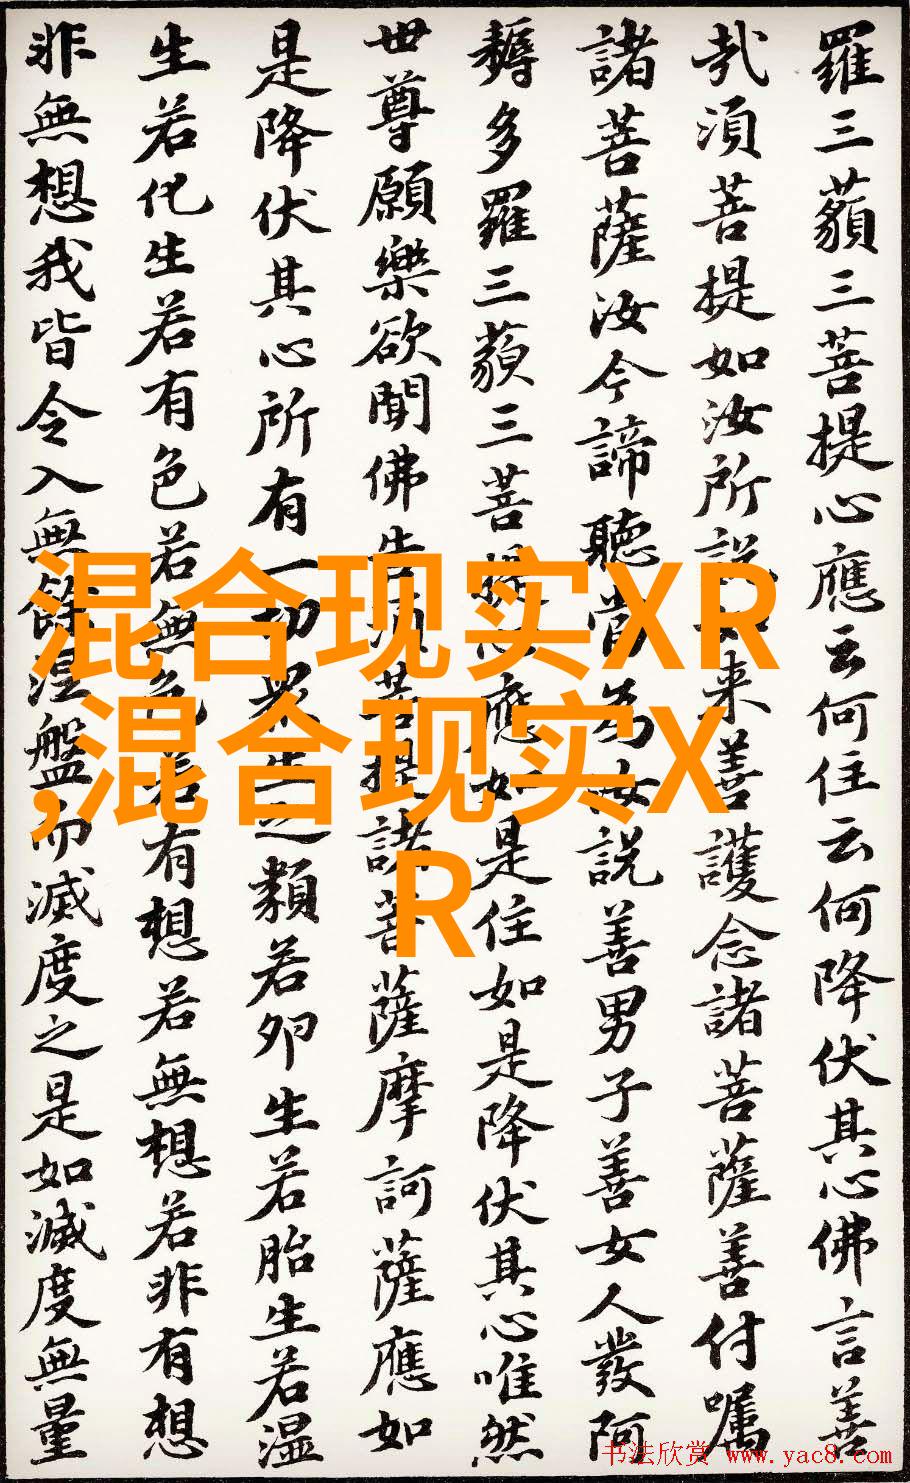 羅三藐三菩提心應云何住云何降伏其心佛言善
哉須菩提如汝所說如来善護念諸菩薩善付嘱
諸菩薩汝今諦聽當為汝說善男子善女人發阿
耨多羅三藐三菩提心應如是住如是降伏其心唯然
世尊願樂欲聞佛告須菩提諸菩薩摩訶薩應如
是降伏其心所有一切眾生之類若卵生若胎生若湿
生若化生若有色若無色若有想若無想若非有想
非無想我皆令入無餘涅盤而滅度之是如滅度無量
混合现实XR
,混合现实X
R
书法欣赏 www.yac8.com